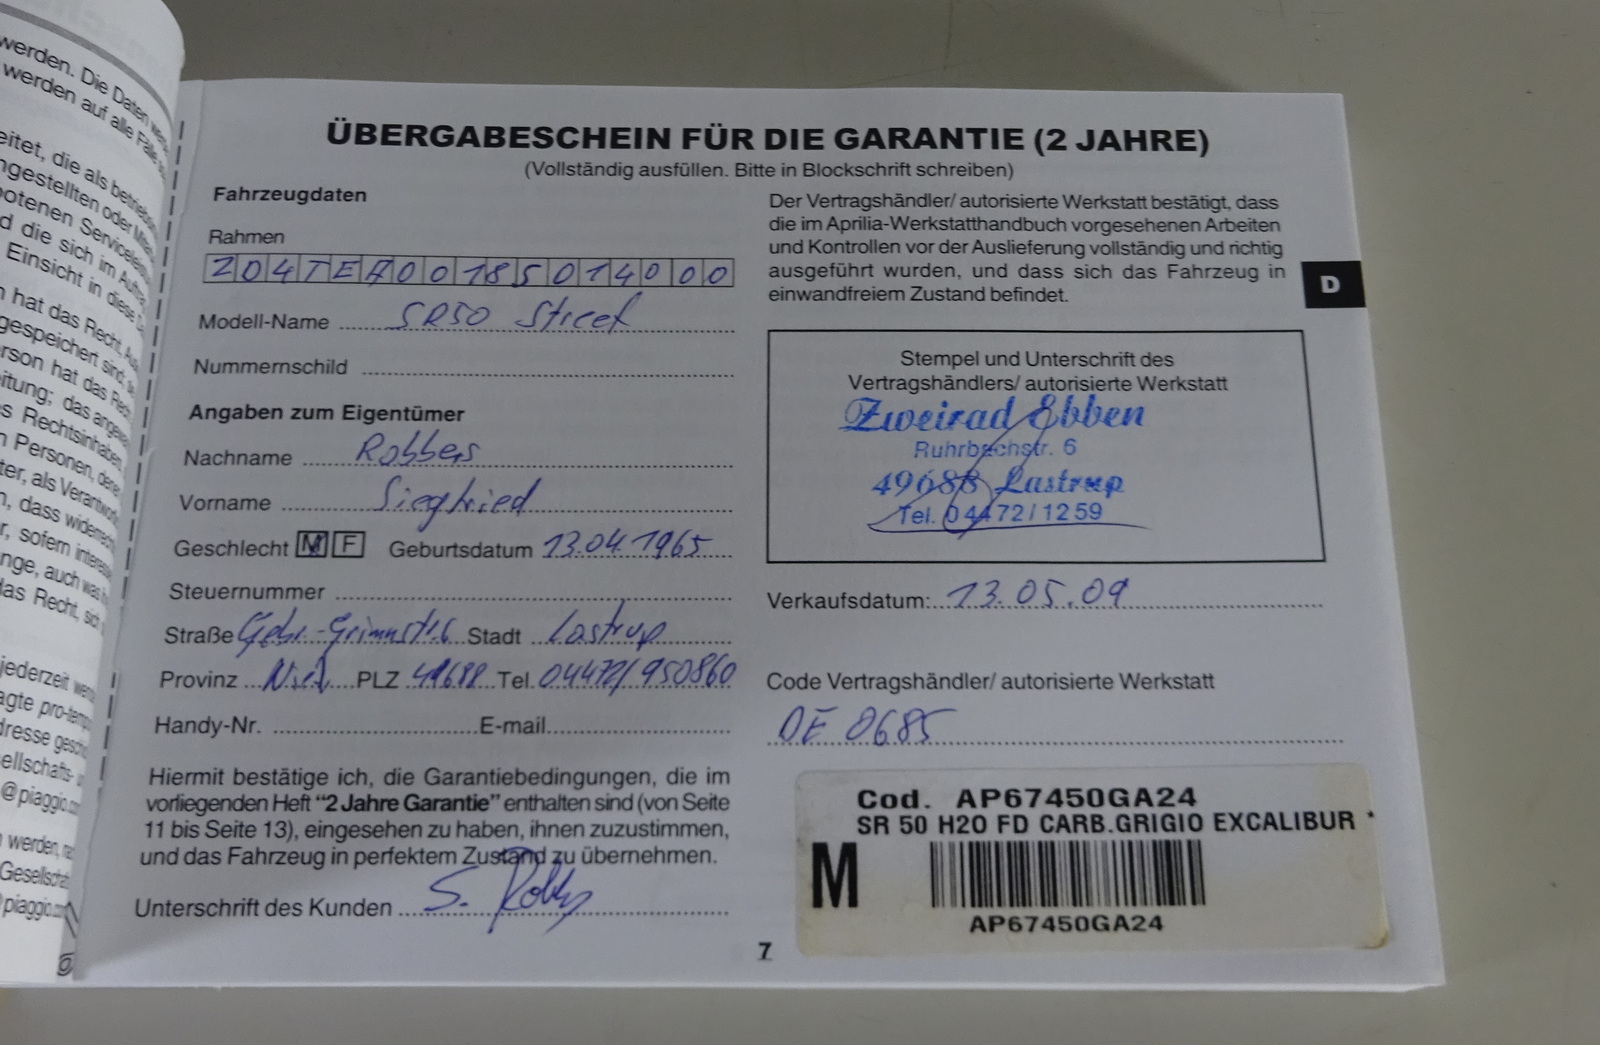 werden. Die Daten
werden auf alle Fälle
eitet, die als
ngestellten oder
botenen
d die sich im
Einsicht in diese
hat das Recht,
gespeichert sind,
rson hat das Recht
itung; das
s Rechtsinhabers
Personen,
ter, als
dass
r, sofern
nge, auch
das Recht, sich
jederzeit
agte pro-temp
dresse
ellschafts-
@piaggio.com
werden,
Gesellschaft
piaggio.com
ÜBERGABESCHEIN FÜR DIE GARANTIE (2 JAHRE)
(Vollständig ausfüllen. Bitte in Blockschrift schreiben)
Fahrzeugdaten
Rahmen
ZD4TEA00185014000
Modell-Name SR50 Street
Nummernschild
Angaben zum Eigentümer
Nachname Robbers
Vorname Siegfried
Geschlecht M F Geburtsdatum 13.04.1965
Steuernummer
Straße Gebr.-Grimmstr.6 Stadt Lastrup
Provinz Nied PLZ 49688 Tel. 04472/950860
Handy-Nr. E-mail
Hiermit bestätige ich, die Garantiebedingungen, die im
vorliegenden Heft “2 Jahre Garantie” enthalten sind (von Seite
11 bis Seite 13), eingesehen zu haben, ihnen zuzustimmen,
und das Fahrzeug in perfektem Zustand zu übernehmen.
Unterschrift des Kunden S. Robbers
Der Vertragshändler/ autorisierte Werkstatt bestätigt, dass
die im Aprilia-Werkstatthandbuch vorgesehenen Arbeiten
und Kontrollen vor der Auslieferung vollständig und richtig
ausgeführt wurden, und dass sich das Fahrzeug in
einwandfreiem Zustand befindet.
D
Stempel und Unterschrift des
Vertragshändlers/ autorisierte Werkstatt
Zweirad Ebben
Ruhrbachstr. 6
49688 Lastrup
Tel. 04472/1259
Verkaufsdatum: 13.05.09
Code Vertragshändler/ autorisierte Werkstatt
DE 0685
Cod. AP67450GA24
SR 50 H2O FD CARB.GRIGIO EXCALIBUR *
M
AP67450GA24
7